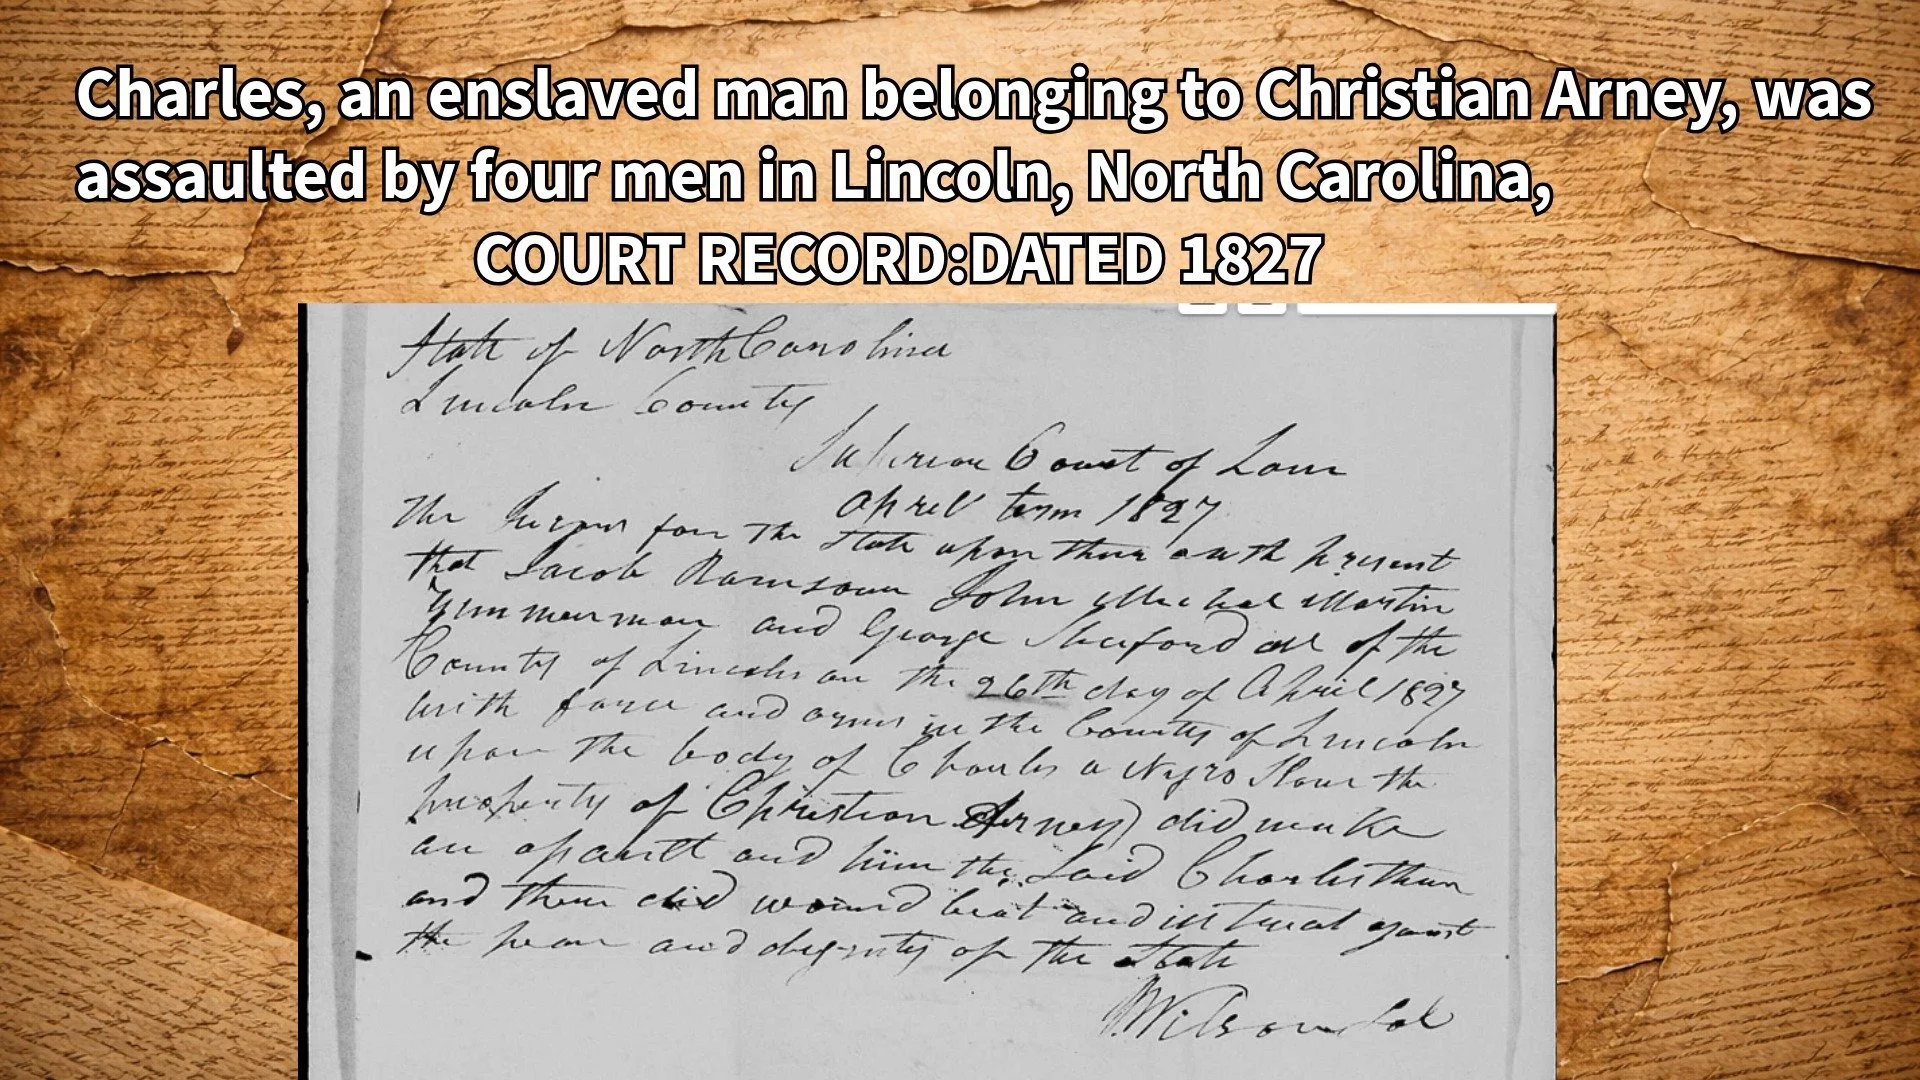 Charles, an enslaved man belonging to Christian Arney, was
assaulted by four men in Lincoln, North Carolina,
COURT RECORD:DATED 1827
State of North Carolina
Lincoln County
Superior Court of Law
April term 1827
The Jurors for the State upon their oath present
that Jacob Ramsour John Michal Martin
Zimmerman and George Shuford all of the
County of Lincoln on the 26th day of April 1827
with force and arms in the County of Lincoln
upon the body of Charles a Negro Slave the
property of Christian Arney) did make
an assault and him the Said Charles then
and there did wound beat and illtreat against
the peace and dignity of the State
Wilson Sol